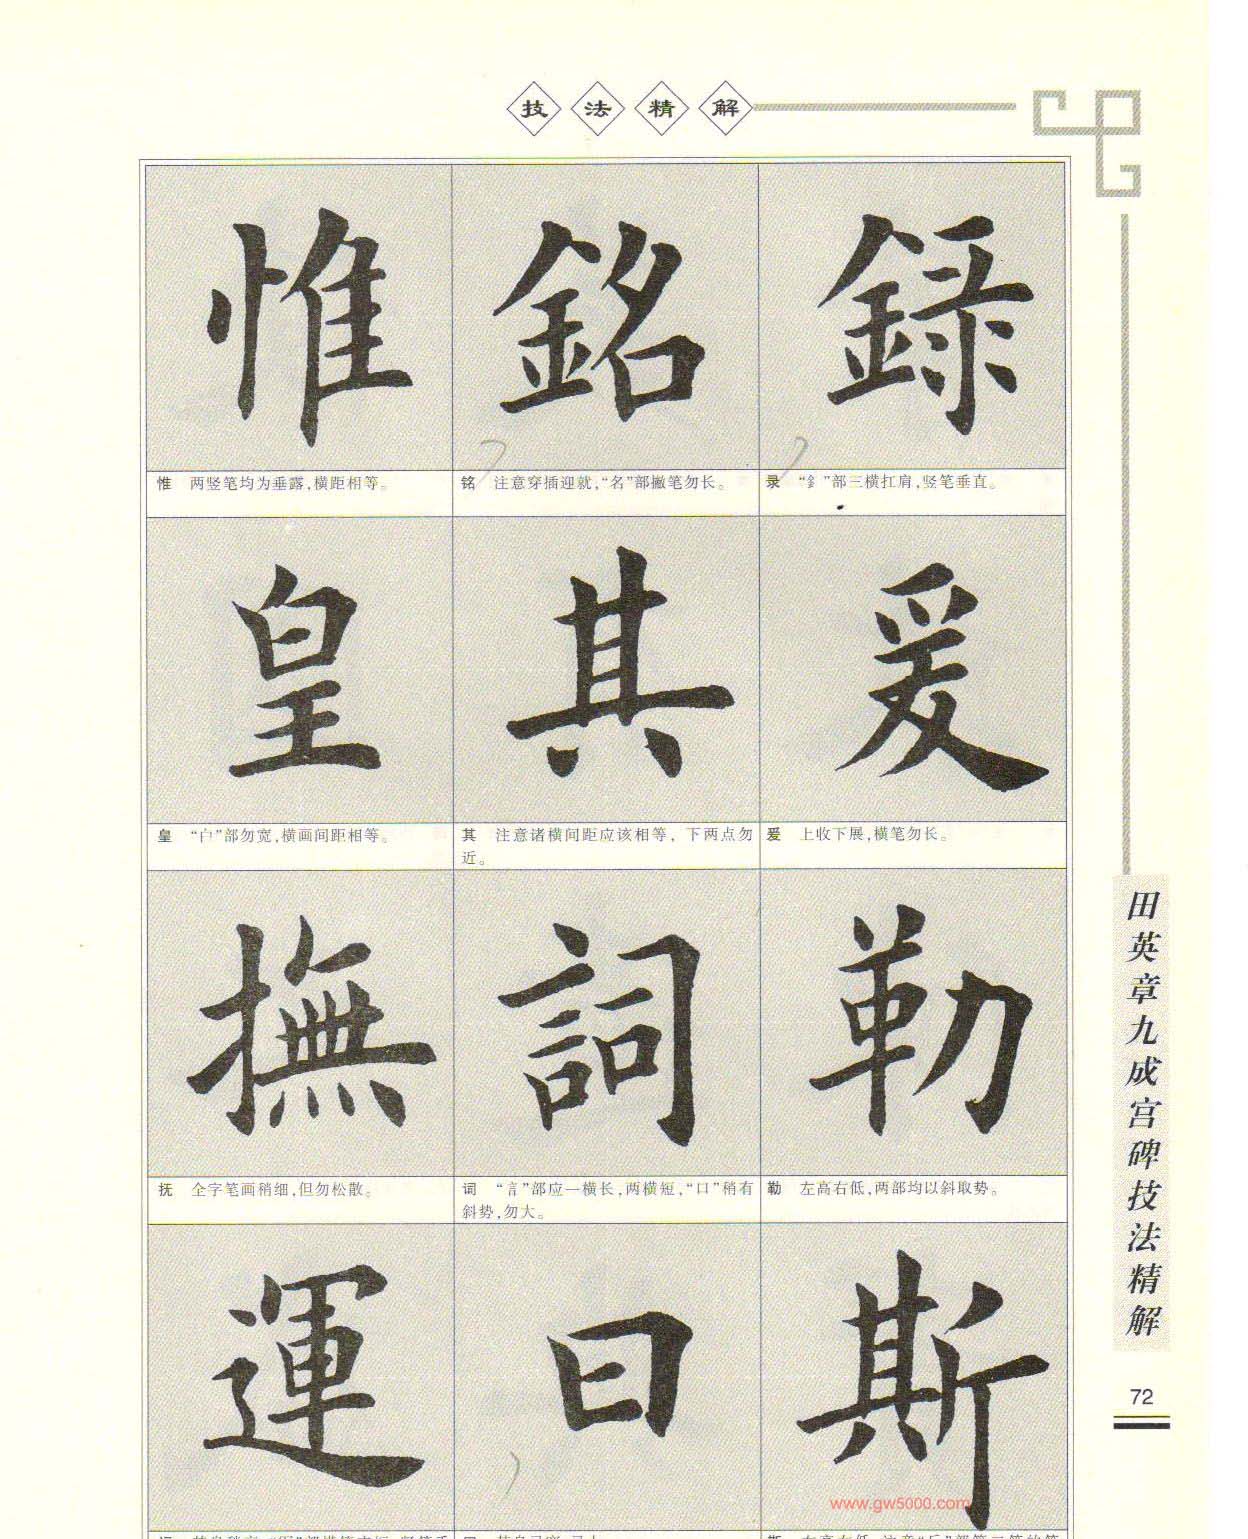 技法精解
惟 銘 録
惟 两竖笔均为垂露,横距相等。
铭 注意穿插迎就,“名”部撇笔勿长。
录 “釒”部三横扛肩,竖笔垂直。
皇 其 爰
皇 “白”部勿宽,横画间距相等。
其 注意诸横间距应该相等,下两点勿
近。
爰 上收下展,横笔勿长。
撫 詞 勒
抚 全字笔画稍细,但勿松散。
词 “言”部应一横长,两横短,“口”稍有
斜势,勿大。
勒 左高右低,两部均以斜取势。
運 曰 斯
田英章九成宫碑技法精解
72
www.gw5000.com